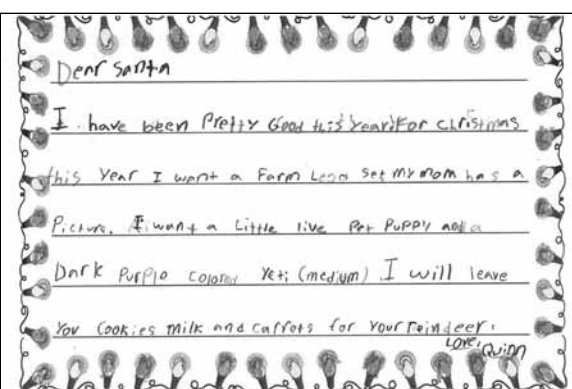 Dear Santa
I have been Pretty Good this year. For christmas
this Year I want a Farm Lego set my mom has a
Picture. I want a Little live Pet Puppy and a
Dark Purple colored Yeti (medium). I will leave
You Cookies milk and carrots for Your reindeer.
Love, Quinn